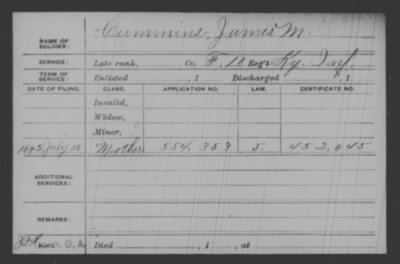 NAME OF SOLDIER: Cummins, James M.
SERVICE: Late rank, Co. F, 18 Reg't Ky. Inf.
TERM OF SERVICE: Enlisted , 1 Discharged , 1
DATE OF FILING. CLASS. APPLICATION NO. LAW. CERTIFICATE NO.
Invalid,
Widow,
Minor,
1892, July 15 Mother 554,353 J. 452,645
ADDITIONAL SERVICES:
REMARKS:
Died , 1 , at